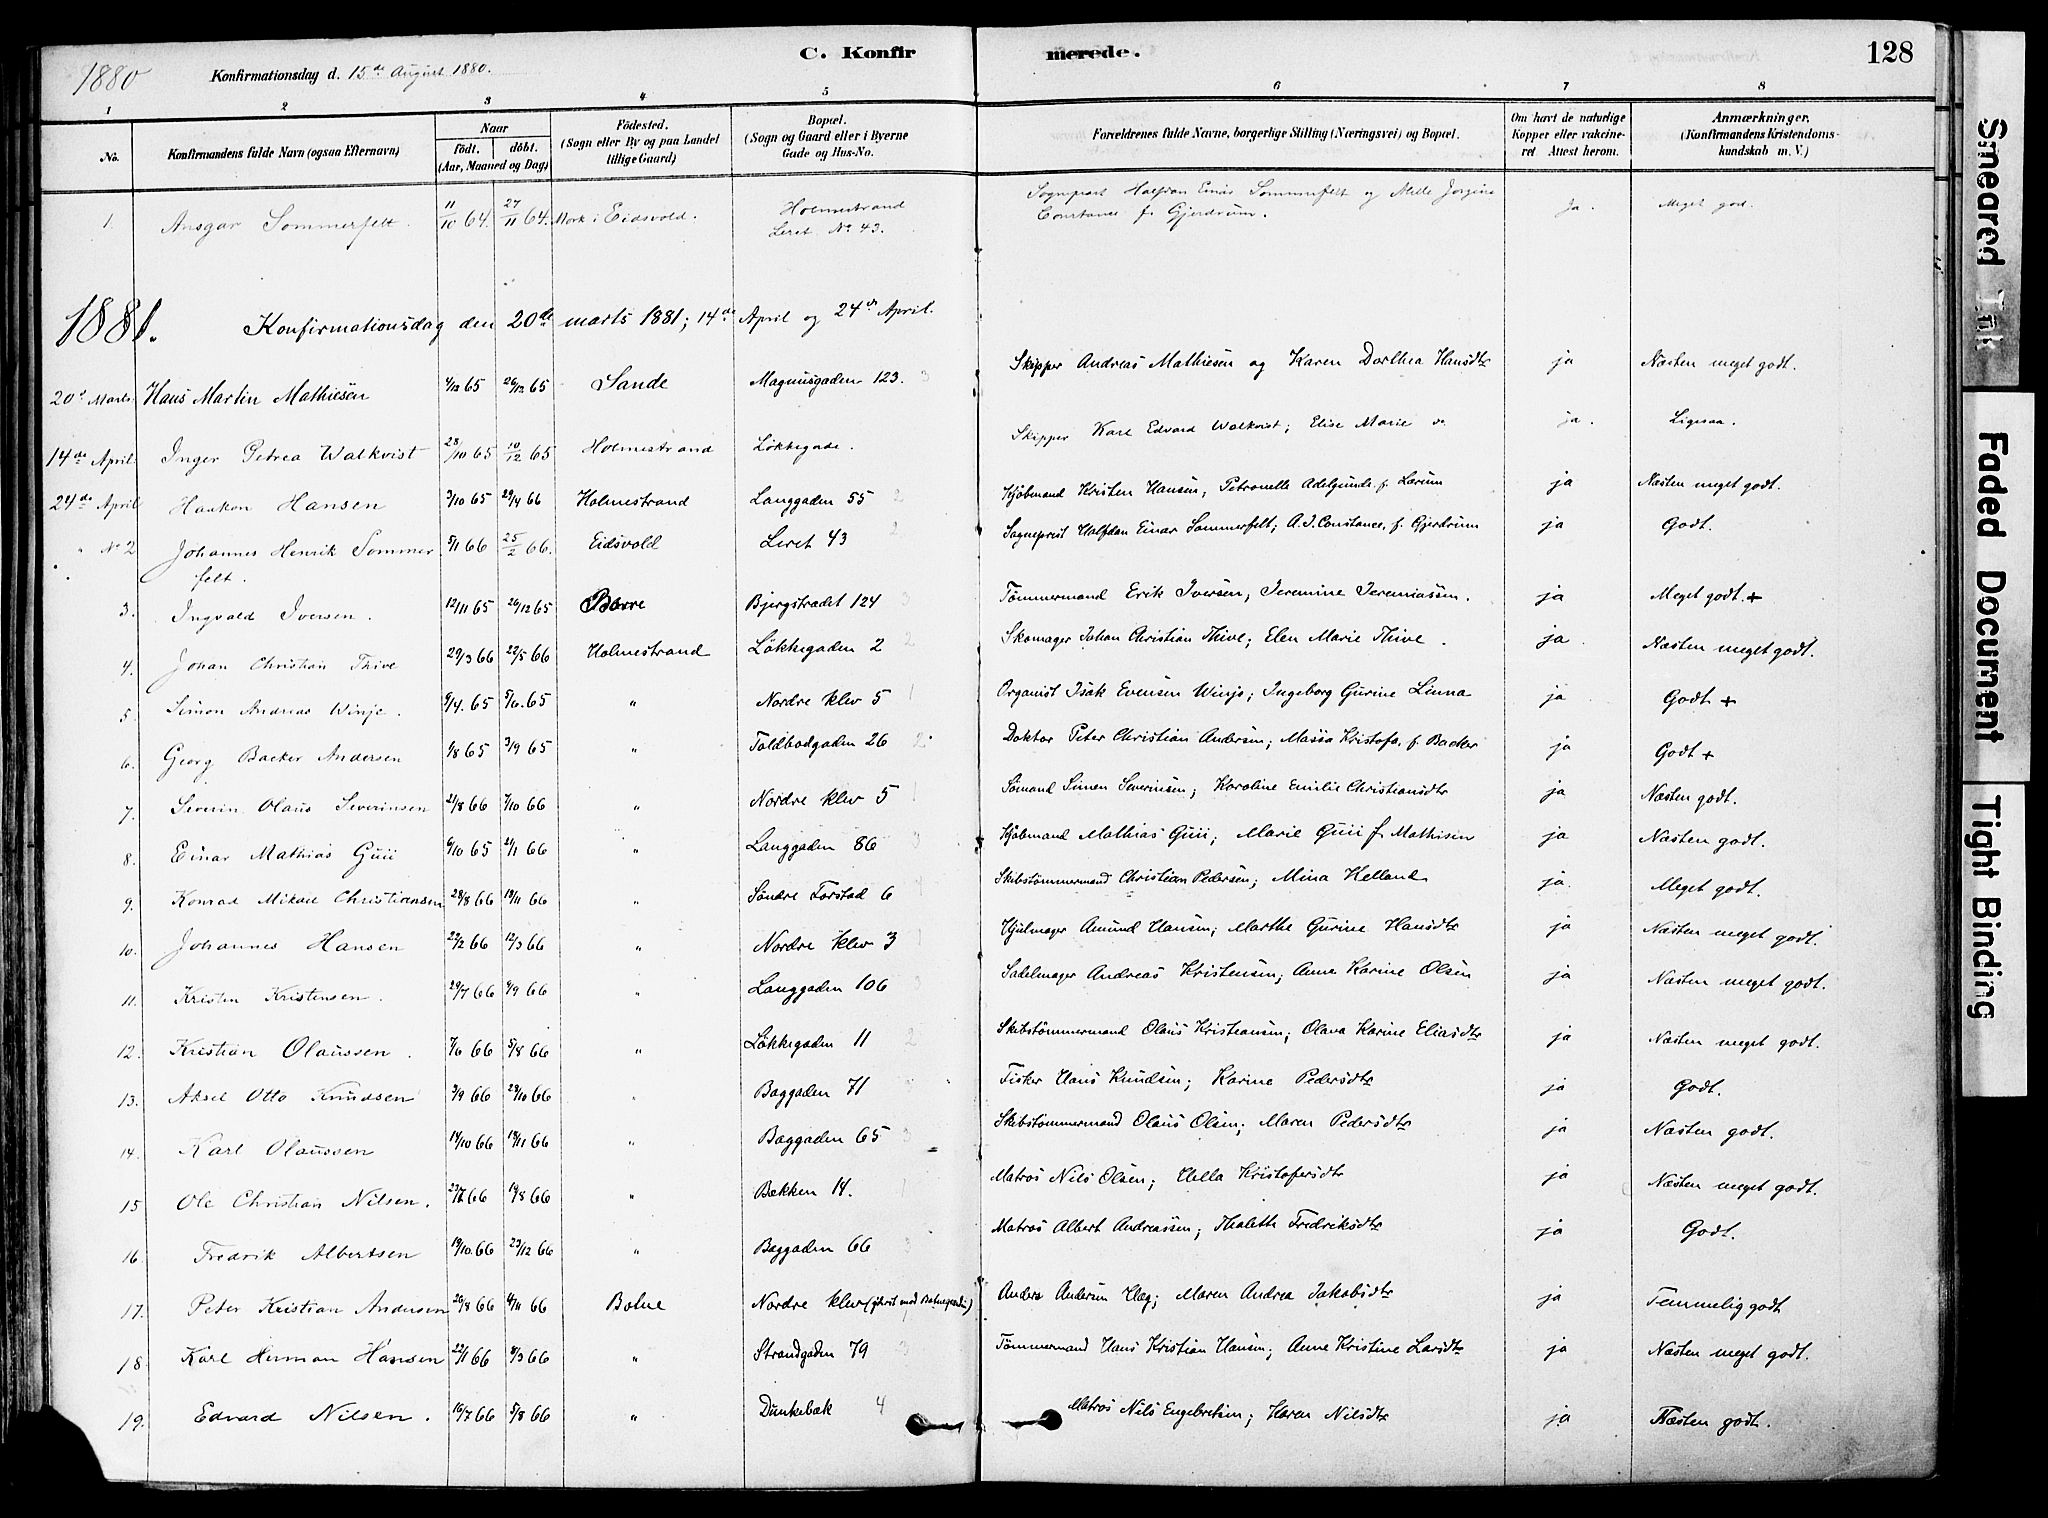 1880 Konfirmationsdag d. 15de August 1880. C. Konfirmerede. 128
1 2 3 4 5 6 7 8
No. Konfirmandens fulde Navn (ogsaa Efternavn) Naar födt. döbt. (Aar, Maaned og Dag) Födested. (Sogn eller By og paa Landet tillige Gaard) Bopæl. (Sogn og Gaard eller i Byerne Gade og Hus-No. Forældrenes fulde Navne, borgerlige Stilling (Næringsvei) og Bopæl. Om havt de naturlige Kopper eller vakcineret. Attest herom. Anmærkninger, (Konfirmandens Kristendomskundskab m. V.)
1. Ansgar Sommerfelt 11/10 64. 27/11 64. Mork i Eidsvold. Holmestrand Leret No 43. Sogneprest Halfdan Einar Sommerfelt og Constance f. Gjerdrum. Ja. Meget god.
1881. Konfirmationsdag den 20de marts 1881; 14de April og 24de April.
20de Marts. Hans Martin Mathiesen 4/12 65 26/12 65 Sande Magnusgaden 123. 3 Skipper Andreas Mathiesen og Karen Dorthea Hansdtr ja Næsten meget godt.
14de April. Inger Petrea Walkvist 28/10 65 10/12 65 Holmestrand Løkkegade. Skipper Karl Edvard Walkvist; Elise Marie ja. Ligesaa.
24de April Haakon Hansen 3/10 65 29/4 66 Holmestrand Langgaden 55 2 Kjøbmand Kristen Hansen, Petronelle Adelgunde f. Larum ja Næsten meget godt.
" No 2 Johannes Henrik Sommerfelt. 5/1 66 25/2 66. Eidsvold Leret 43 2 Sogneprest Halfdan Einar Sommerfelt; A. J. Constance, f. Gjerdrum ja Godt.
3. Ingvald Iversen. 12/11 65 26/12 65 Borre Bjergstrædet 124 3 Tømmermand Erik Iversen; Jeremine Jeremiassen. ja Meget godt. +
4. Johan Christian Thive 29/3 66 22/5 66 Holmestrand Løkkegaden 2 2 Skomager Johan Christian Thive; Elen Marie Thive. ja. Næsten meget godt.
5. Simon Andreas Winje. 9/4. 65 5/6. 65 " Nordre klev 5 1 Organist Isak Evensen Winje; Ingeborg Gurine Linna ja Godt +
6. Georg Backer Andersen 1/8 65 3/9 65 " Toldbodgaden 26 2 Doktor Peter Christian Andersen; Massa Kristofa. f. Backer ja Godt +
7. Severin Olaus Severinsen 21/8 66 7/10 66 " Nordre klev 5 1 Sömand Simen Severinsen; Karoline Emilie Christiansdtr ja Næsten godt.
8. Einar Mathias Guii 6/10 65 21/1 66 " Langgaden 86 3 Kjøbmand Mathias Guii; Marie Guii f. Mathisen ja Næsten godt.
9. Konrad Mikael Christiansen 28/8 66 18/11 66 " Søndre Torstad 6 Skibstømmermand Christian Pedersen; Mina Helland ja. Meget godt.
10. Johannes Hansen 22/2 66 12/3 66 " Nordre klev 3 Hjulmager Amund Hansen; Marthe Gurine Hansdtr ja Næsten meget godt.
11. Kristen Kristensen. 29/7 66 9/9 66 " Langgaden 106 2 Sadelmager Andreas Kristensen; Anne Karine Olsen ja Næsten meget godt.
12. Kristian Olaussen. 7/6 66 5/8 66 " Løkkegaden 11 2 Skibstømmermand Olaus Kristiansen; Olava Karine Eliasdtr ja Næsten meget godt.
13. Aksel Otto Knudsen 3/9 66 28/10 66 " Baggaden 71 Fisker Hans Knudsen; Karine Pedersdtr ja Godt.
14. Karl Olaussen 14/10 66 18/11 66 " Baggaden 65 3 Skibstømmermand Olaus Olsen; Maren Pedersdtr ja Næsten godt.
15 Ole Christian Nilsen. 23/7 66 19/8 66 " Bækken 14. Matros Nils Olsen; Hella Kristofersdtr ja Næsten meget godt.
16. Fredrik Albertsen 19/10. 66 23/12 66 " Baggaden 66 3 Matros Albert Andreassen; Thalette Fredriksdtr ja Godt.
17. Peter Kristian Andersen 26/8 66 4/11 66 Botne Nordre klev Anders Andersen Hæg; Maren Andrea Jakobsdtr ja Temmelig godt
18 Karl Herman Hansen 22/1 66 8/3 66 " Strandgaden 79 3 Tömmermand Hans Kristian Hansen; Anne Kristine Larsdtr ja Næsten meget godt.
19. Edvard Nilsen. 16/7 66 5/8 66 " Dunkebæk 4 Matros Nils Engebretsen; Karen Nilsdtr ja Næsten godt.
Smeared Ink
Faded Document
Tight Binding